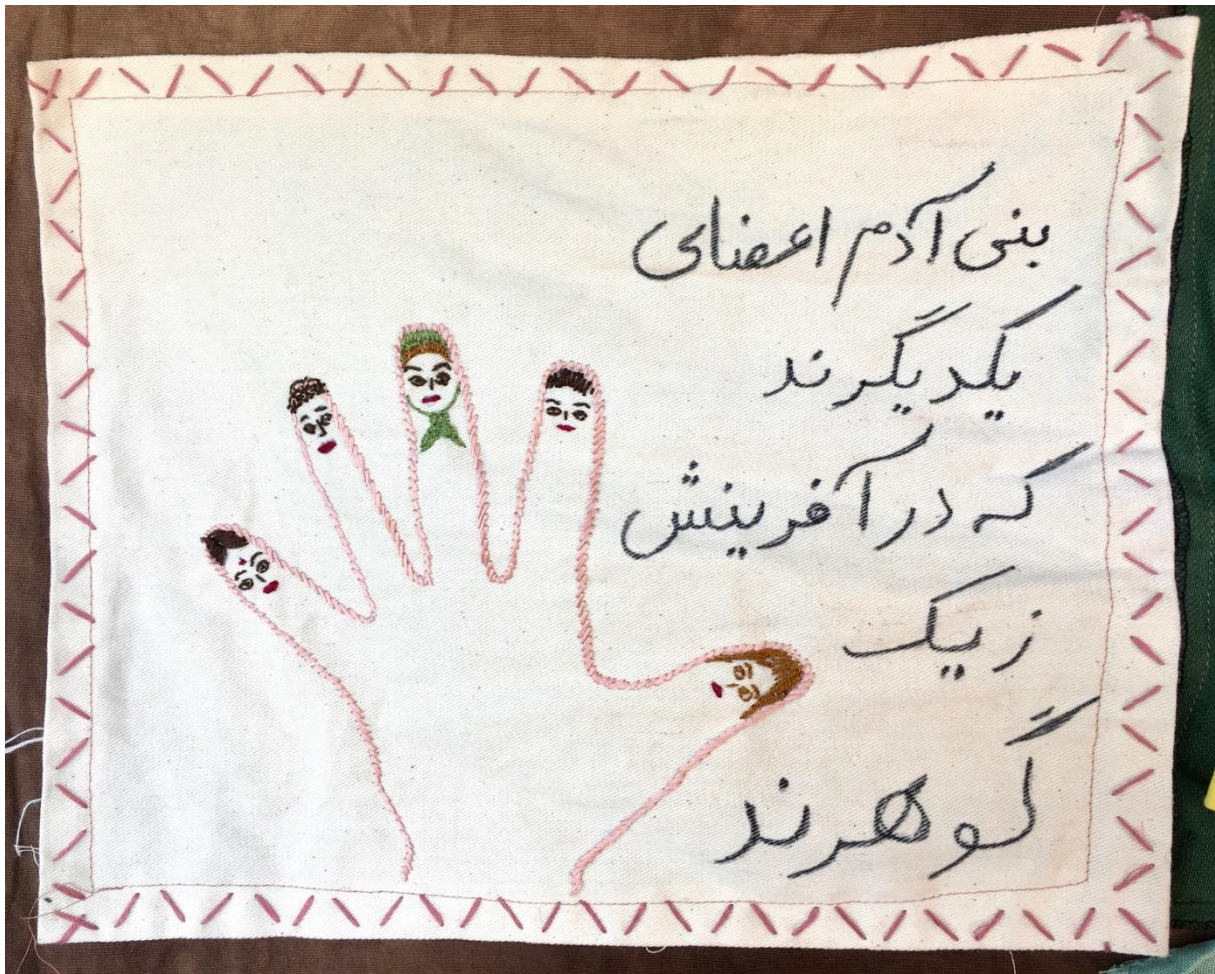 بنی آدم اعضای
یکدیگرند
که در آفرینش
ز یک
گوهرند